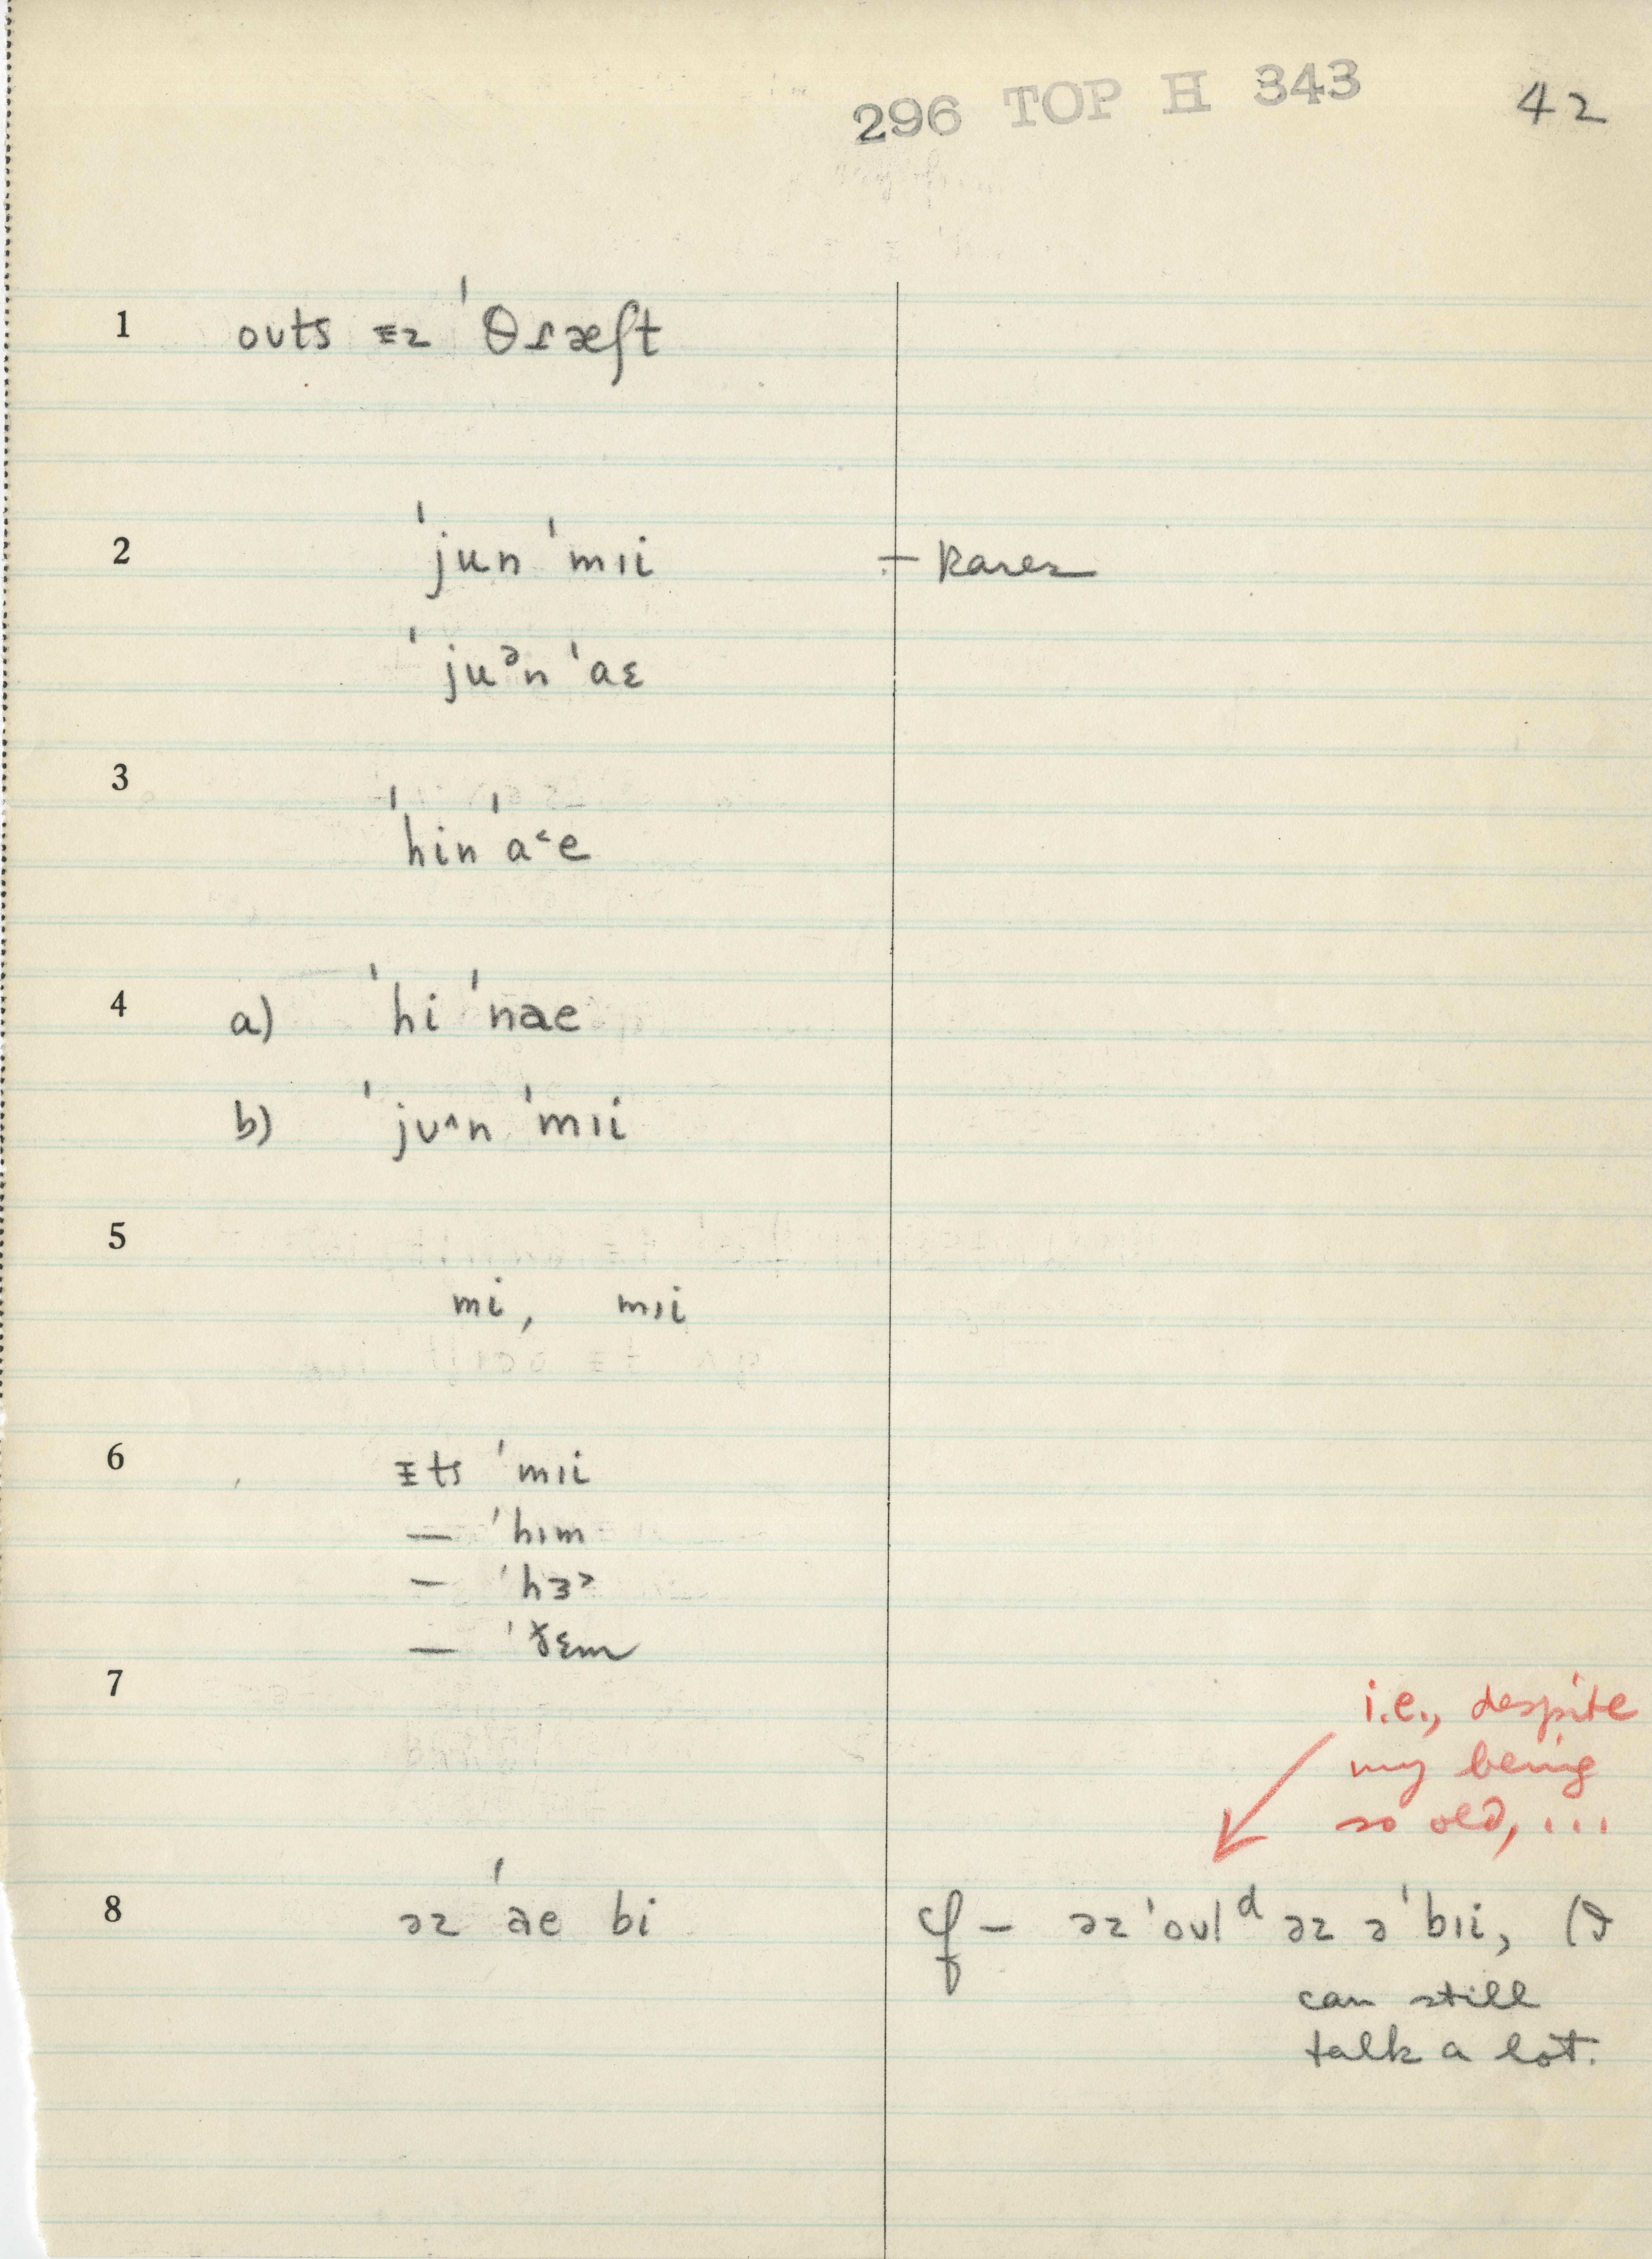 296 TOP H 343 42
1 oʊts ɪz ˈθɾæʃt
2 ˈjun ˈmɪi ÷ rarer
ˈjuᵊn ˈaɛ
3 ˈhin ˈa˂e
4 a) ˈhi ˈnae
b) ˈjʊ^n ˈmɪi
5 mi, mɪi
6 ɪts ˈmɪi
— ˈhɪm
— ˈhɜ˃
— ˈðɛm
7
i.e., despite
my being
so old, ...
8 əz ˈae bi cf – əz ˈoʊlᵈ əz əˈbɪi, (I
can still
talk a lot.